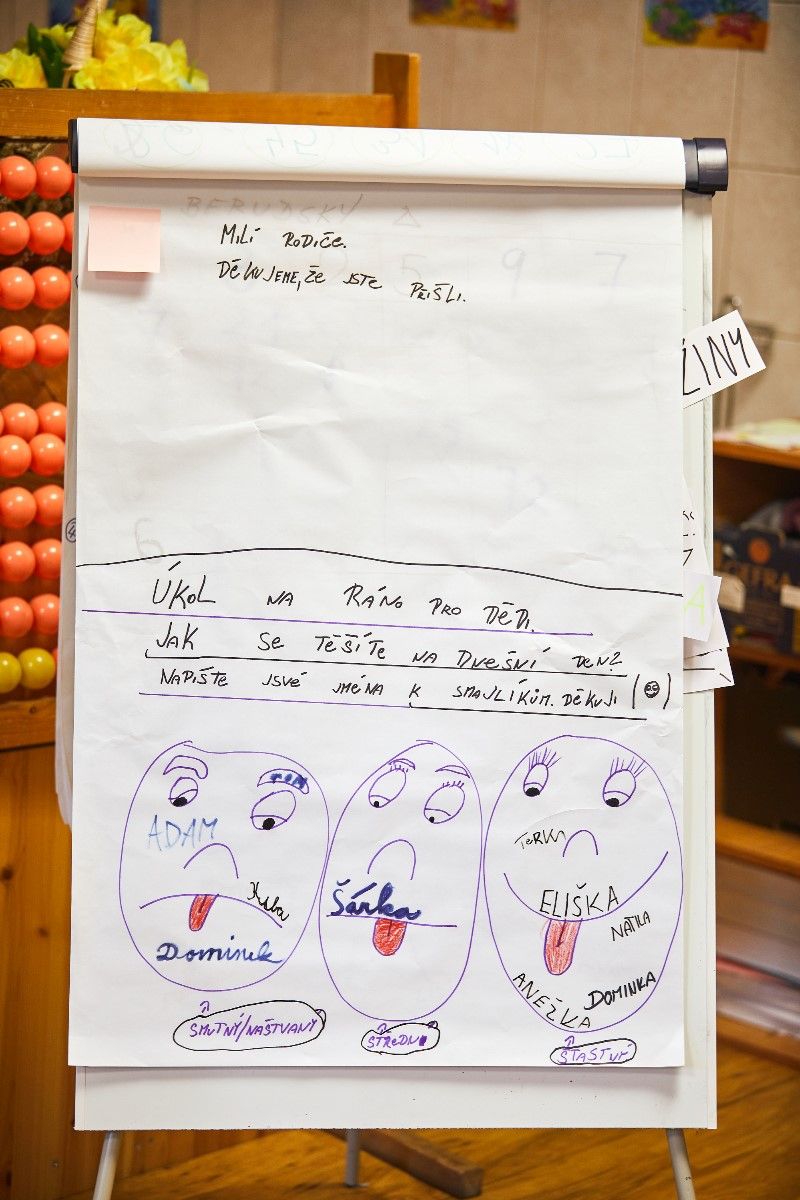 BERUŠKY
MILÍ RODIČE.
DĚKUJEME, ŽE JSTE PŘIŠLI.
5 9 7
ŽINY
6
ÚKOL NA RÁNO PRO DĚTI.
JAK SE TĚŠÍTE NA DNEŠNÍ DEN?
NAPIŠTE JSVÉ JMÉNA K SMAJLÍKŮM. DĚKUJI
A
ADAM
Kuba
Dominik
Šárka
TERKA
ELIŠKA
NATKA
ANEŽKA
DOMINKA
SMUTNÝ/NAŠTVANÝ
STŘEDNÍ
ŠŤASTNÝ